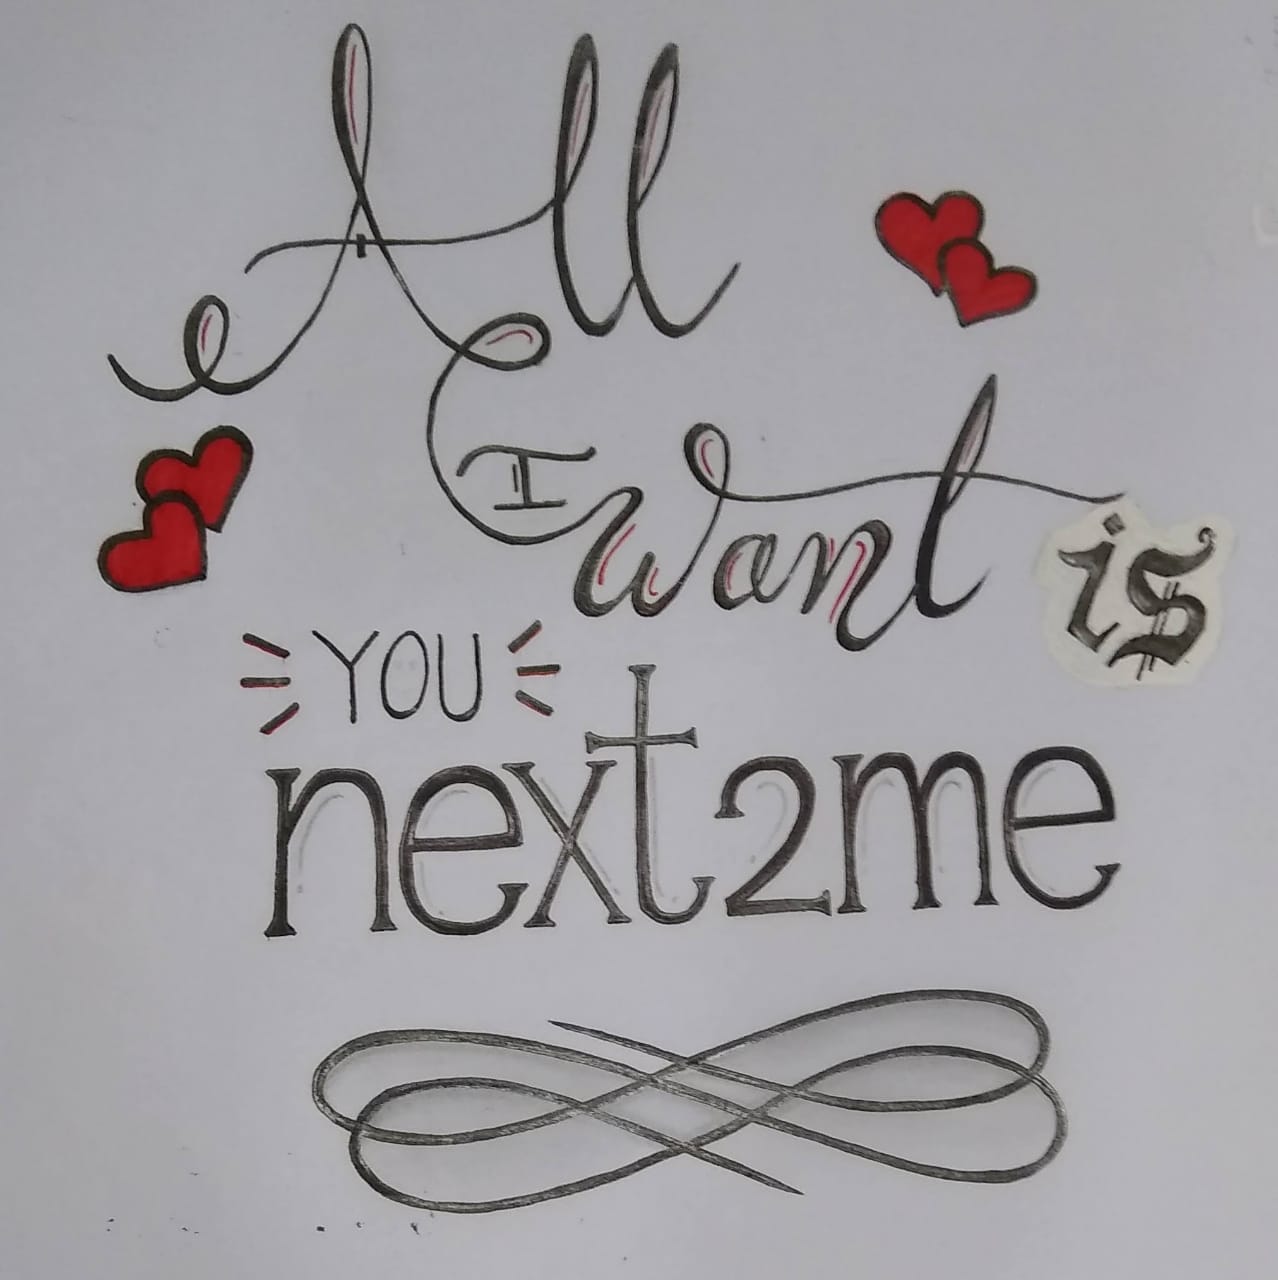 All
I
want is
YOU
next2me